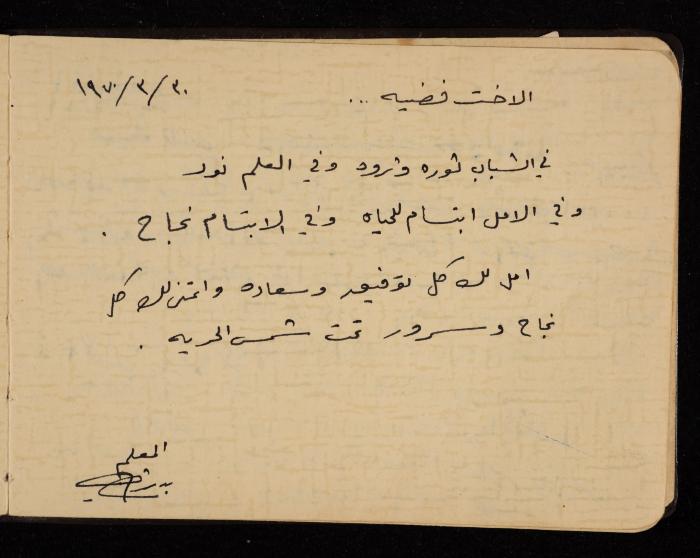 الاخت فضيه ... ٣٠/٣/١٩٧٠
في الشباب ثوره وثروه وفي العلم نور
وفي الامل ابتسام للحياه وفي الابتسام نجاح .
امل لك كل توفيق وسعاده واتمنى لك كل
نجاح وسرور تحت شمس الحريه .
المعلم